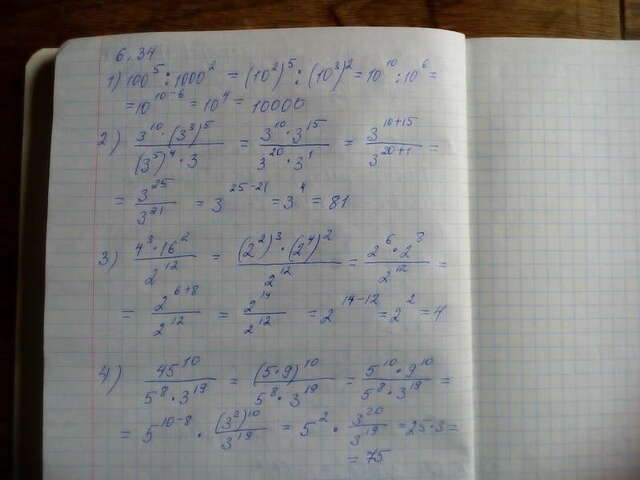 6.34
1) 100⁵ : 1000² = (10²)⁵ : (10³)² = 10¹⁰ : 10⁶ =
= 10¹⁰⁻⁶ = 10⁴ = 10000
2) (3¹⁰ · (3³)⁵) / ((3⁵)⁴ · 3) = (3¹⁰ · 3¹⁵) / (3²⁰ · 3¹) = 3¹⁰⁺¹⁵ / 3²⁰⁺¹ =
= 3²⁵ / 3²¹ = 3²⁵⁻²¹ = 3⁴ = 81
3) (4³ · 16²) / 2¹² = ((2²)³ · (2⁴)²) / 2¹² = (2⁶ · 2⁸) / 2¹² =
= 2⁶⁺⁸ / 2¹² = 2¹⁴ / 2¹² = 2¹⁴⁻¹² = 2² = 4
4) 45¹⁰ / (5⁸ · 3¹⁹) = (5 · 9)¹⁰ / (5⁸ · 3¹⁹) = (5¹⁰ · 9¹⁰) / (5⁸ · 3¹⁹) =
= 5¹⁰⁻⁸ · (3²)¹⁰ / 3¹⁹ = 5² · 3²⁰ / 3¹⁹ = 25 · 3 =
= 75